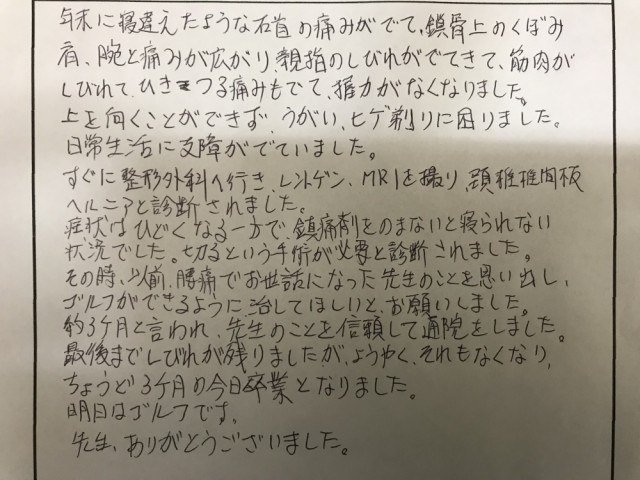 年末に寝違えたような右首の痛みがでて、鎖骨上のくぼみ
肩、腕と痛みが広がり、親指のしびれがでてきて、筋肉が
しびれて、ひきつる痛みもでて、握力がなくなりました。
上を向くことができず、うがい、ヒゲ剃りに困りました。
日常生活に支障がでていました。
すぐに整形外科へ行き、レントゲン、MRIを撮り、頚椎椎間板
ヘルニアと診断されました。
症状はひどくなる一方で、鎮痛剤をのまないと寝られない
状況でした。切るという手術が必要と診断されました。
その時、以前、腰痛でお世話になった先生のことを思い出し、
ゴルフができるように、治してほしいと、お願いしました。
約3ケ月と言われ、先生のことを信頼して通院をしました。
最後までしびれが残りましたが、ようやく、それもなくなり、
ちょうど3ケ月の今日卒業となりました。
明日はゴルフです。
先生、ありがとうございました。